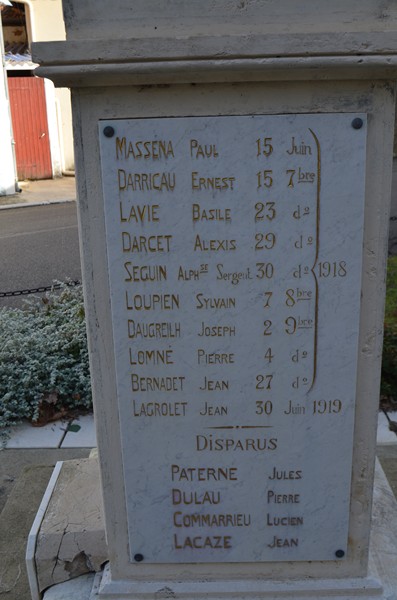 MASSÉNA PAUL 15 Juin
DARRICAU ERNEST 15 7bre
LAVIE BASILE 23 do
DARCET ALEXIS 29 do
SEGUIN ALPHse Sergent 30 do 1918
LOUPIEN SYLVAIN 7 8bre
DAUGREILH JOSEPH 2 9bre
LOMNÉ PIERRE 4 do
BERNADET JEAN 27 do
LAGROLET JEAN 30 Juin 1919
DISPARUS
PATERNE JULES
DULAU PIERRE
COMMARRIEU LUCIEN
LACAZE JEAN